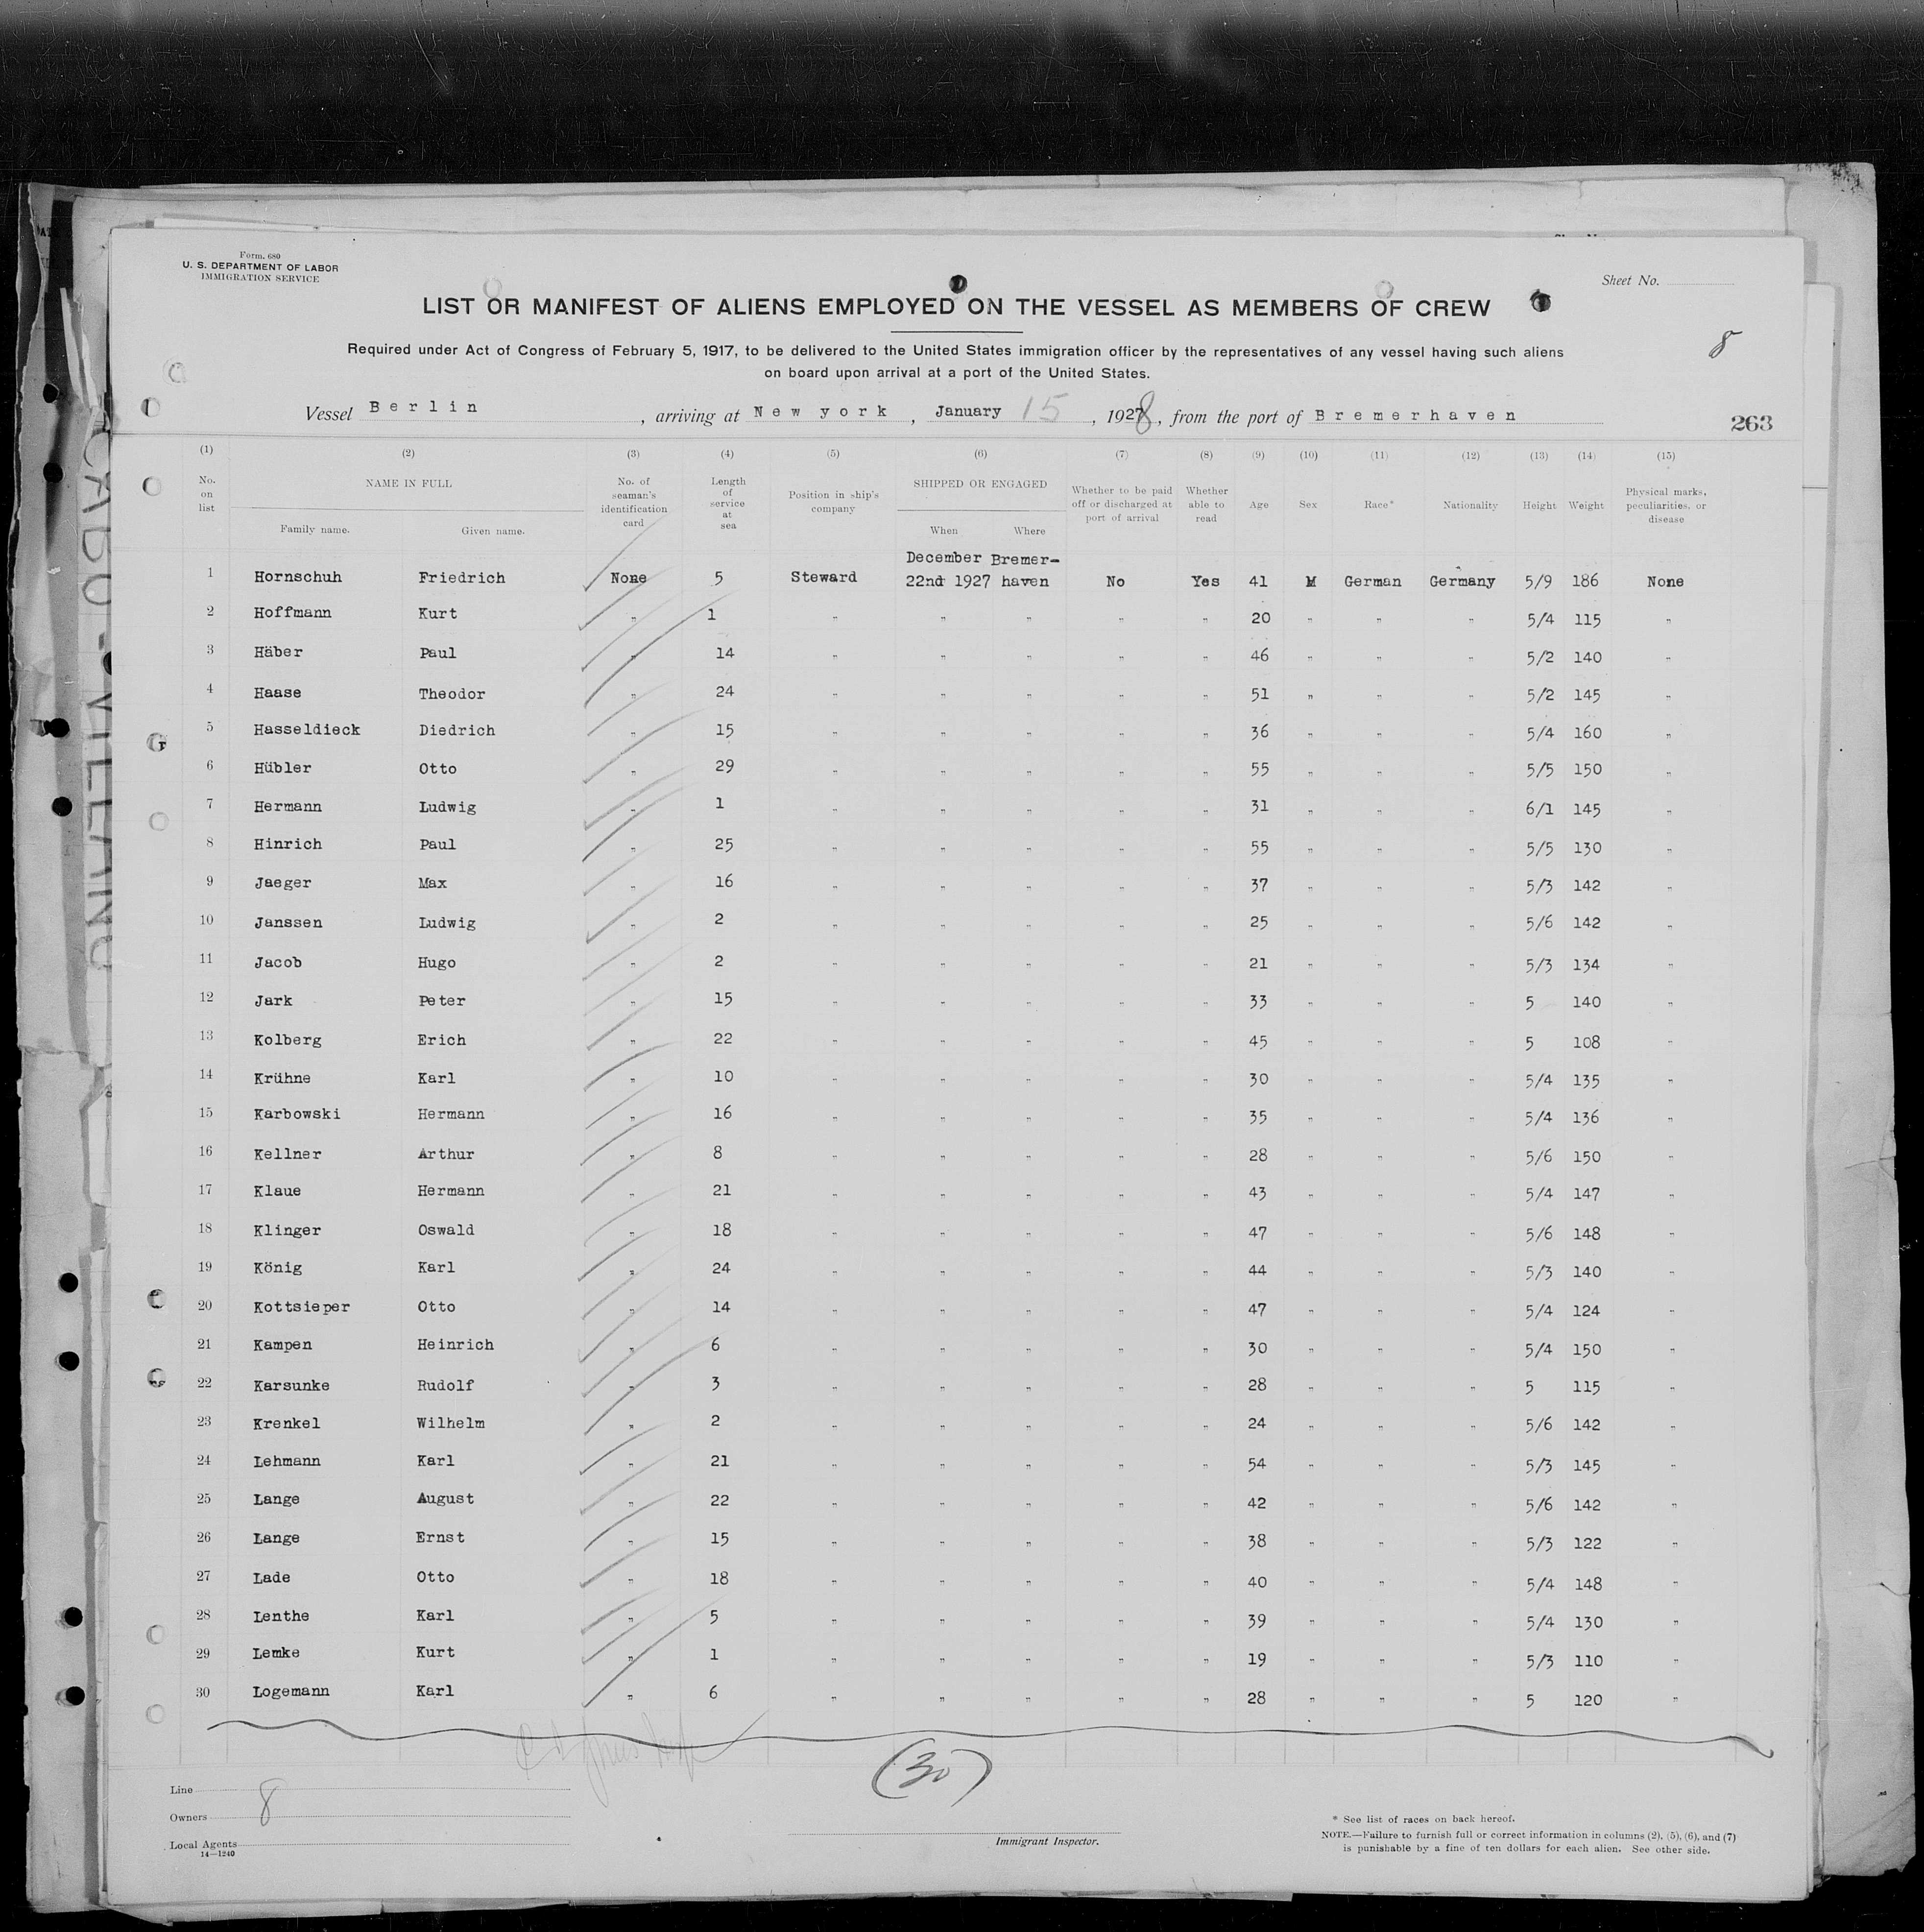 Form. 680
U. S. DEPARTMENT OF LABOR
IMMIGRATION SERVICE
Sheet No.
LIST OR MANIFEST OF ALIENS EMPLOYED ON THE VESSEL AS MEMBERS OF CREW
Required under Act of Congress of February 5, 1917, to be delivered to the United States immigration officer by the representatives of any vessel having such aliens
on board upon arrival at a port of the United States.
8
Vessel Berlin, arriving at New york, January 15, 1928, from the port of Bremerhaven
263
(1) (2) (3) (4) (5) (6) (7) (8) (9) (10) (11) (12) (13) (14) (15)
No. on list NAME IN FULL Family name. Given name. No. of seaman's identification card Length of service at sea Position in ship's company SHIPPED OR ENGAGED When Where Whether to be paid off or discharged at port of arrival Whether able to read Age Sex Race* Nationality Height Weight Physical marks, peculiarities, or disease
December Bremer-
1 Hornschuh Friedrich None 5 Steward 22nd 1927 haven No Yes 41 M German Germany 5/9 186 None
2 Hoffmann Kurt " 1 " " " " " 20 " " " 5/4 115 "
3 Häber Paul " 14 " " " " " 46 " " " 5/2 140 "
4 Haase Theodor " 24 " " " " " 51 " " " 5/2 145 "
5 Hasseldieck Diedrich " 15 " " " " " 36 " " " 5/4 160 "
6 Hübler Otto " 29 " " " " " 55 " " " 5/5 150 "
7 Hermann Ludwig " 1 " " " " " 31 " " " 6/1 145 "
8 Hinrich Paul " 25 " " " " " 55 " " " 5/5 130 "
9 Jaeger Max " 16 " " " " " 37 " " " 5/3 142 "
10 Janssen Ludwig " 2 " " " " " 25 " " " 5/6 142 "
11 Jacob Hugo " 2 " " " " " 21 " " " 5/3 134 "
12 Jark Peter " 15 " " " " " 33 " " " 5 140 "
13 Kolberg Erich " 22 " " " " " 45 " " " 5 108 "
14 Krühne Karl " 10 " " " " " 30 " " " 5/4 135 "
15 Karbowski Hermann " 16 " " " " " 35 " " " 5/4 136 "
16 Kellner Arthur " 8 " " " " " 28 " " " 5/6 150 "
17 Klaue Hermann " 21 " " " " " 43 " " " 5/4 147 "
18 Klinger Oswald " 18 " " " " " 47 " " " 5/6 148 "
19 König Karl " 24 " " " " " 44 " " " 5/3 140 "
20 Kottsieper Otto " 14 " " " " " 47 " " " 5/4 124 "
21 Kampen Heinrich " 6 " " " " " 30 " " " 5/4 150 "
22 Karsunke Rudolf " 3 " " " " " 28 " " " 5 115 "
23 Krenkel Wilhelm " 2 " " " " " 24 " " " 5/6 142 "
24 Lehmann Karl " 21 " " " " " 54 " " " 5/3 145 "
25 Lange August " 22 " " " " " 42 " " " 5/6 142 "
26 Lange Ernst " 15 " " " " " 38 " " " 5/3 122 "
27 Lade Otto " 18 " " " " " 40 " " " 5/4 148 "
28 Lenthe Karl " 5 " " " " " 39 " " " 5/4 130 "
29 Lemke Kurt " 1 " " " " " 19 " " " 5/3 110 "
30 Logemann Karl " 6 " " " " " 28 " " " 5 120 "
(30)
Line
Owners 8
Local Agents
14—1240
Immigrant Inspector.
* See list of races on back hereof.
NOTE.—Failure to furnish full or correct information in columns (2), (5), (6), and (7)
is punishable by a fine of ten dollars for each alien. See other side.